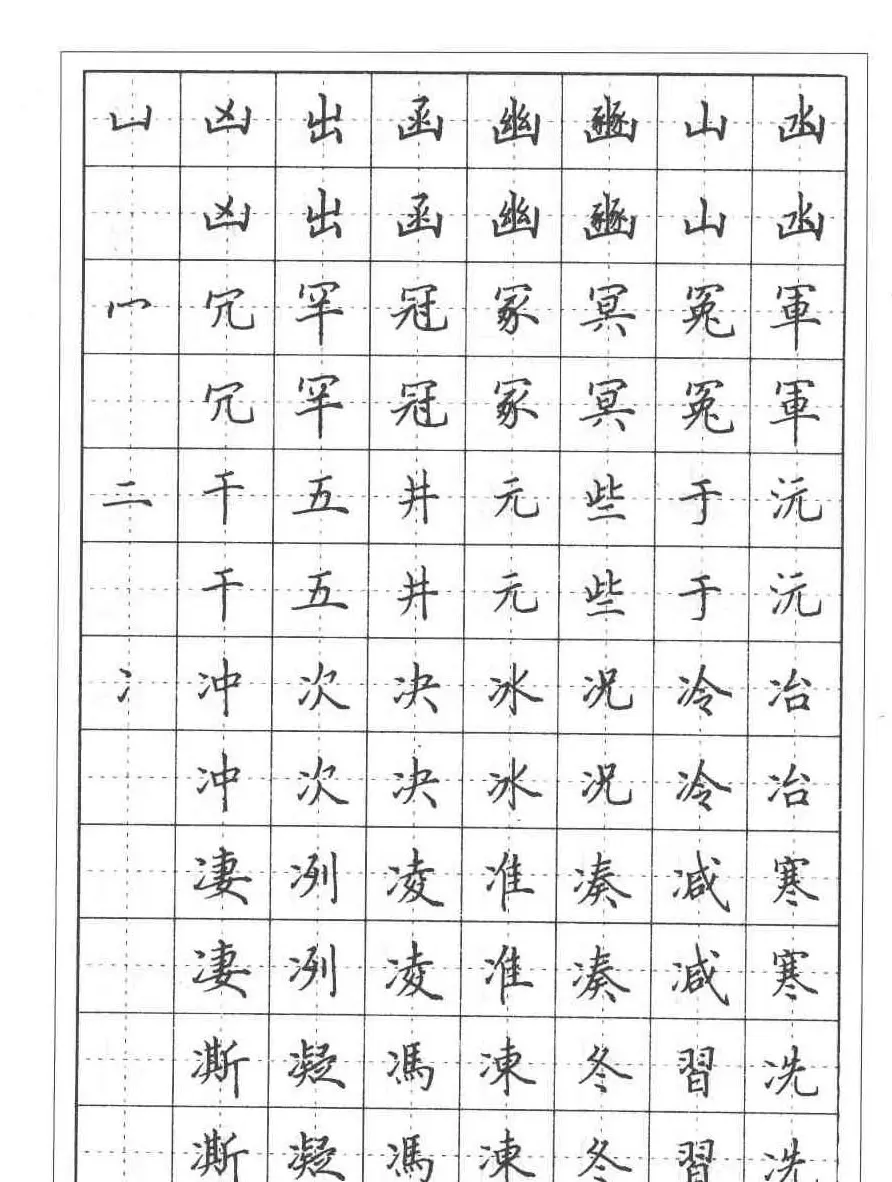 凵凶出函幽豳山凼
凶出函幽豳山凼
冖冗罕冠冢冥冤軍
冗罕冠冢冥冤軍
二干五井元些于沅
干五井元些于沅
冫冲次决冰况冷冶
冲次决冰况冷冶
凄冽凌准凑减寒
凄冽凌准凑减寒
凘凝馮凍冬習冼
凘凝馮凍冬習冼